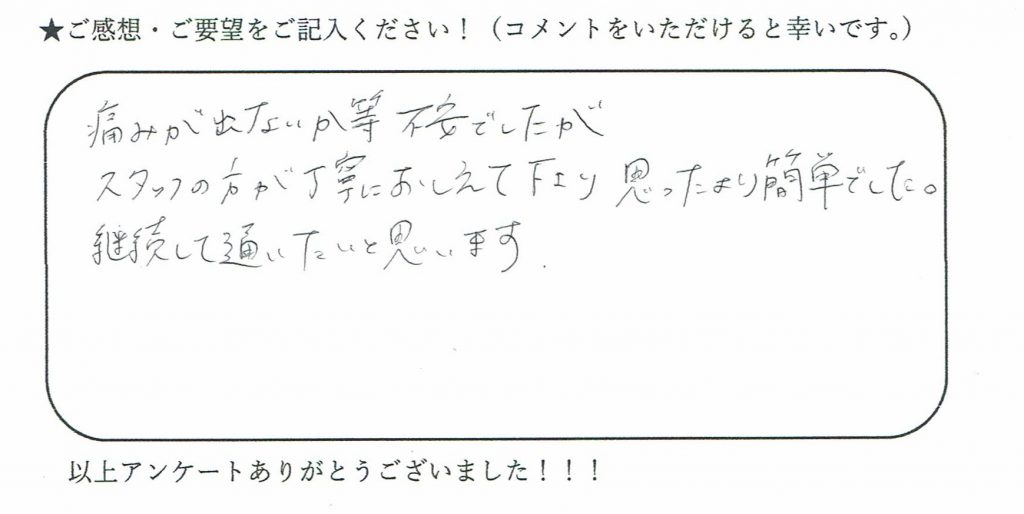 ★ご感想・ご要望をご記入ください！（コメントをいただけると幸いです。）
痛みが出ないか等 不安でしたが
スタッフの方が丁寧におしえて下さり 思ったより簡単でした。
継続して通いたいと思います.
以上アンケートありがとうございました！！！